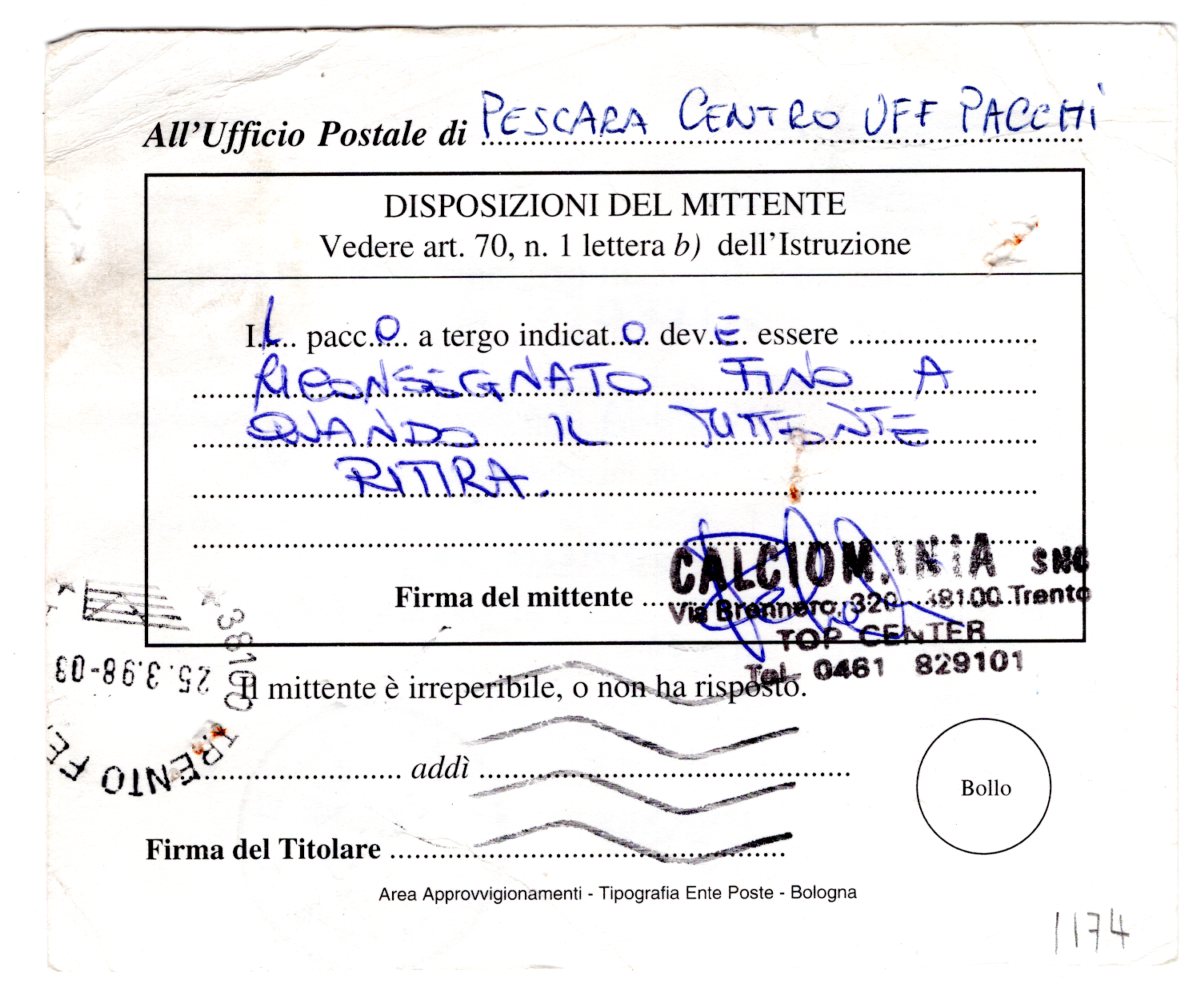 All'Ufficio Postale di PESCARA CENTRO UFF PACCHI
DISPOSIZIONI DEL MITTENTE
Vedere art. 70, n. 1 lettera b) dell'Istruzione
IL pacco a tergo indicato devE essere
RICONSEGNATO FINO A
QUANDO IL
RITIRA.
Firma del mittente
CALCIOM.INIA SNC
Via Brennero, 320 38100 Trento
TOP CENTER
Tel. 0461 829101
38100
25.3.98-03
TRENTO FE
Il mittente è irreperibile, o non ha risposto.
addì
Bollo
Firma del Titolare
Area Approvvigionamenti - Tipografia Ente Poste - Bologna
1174